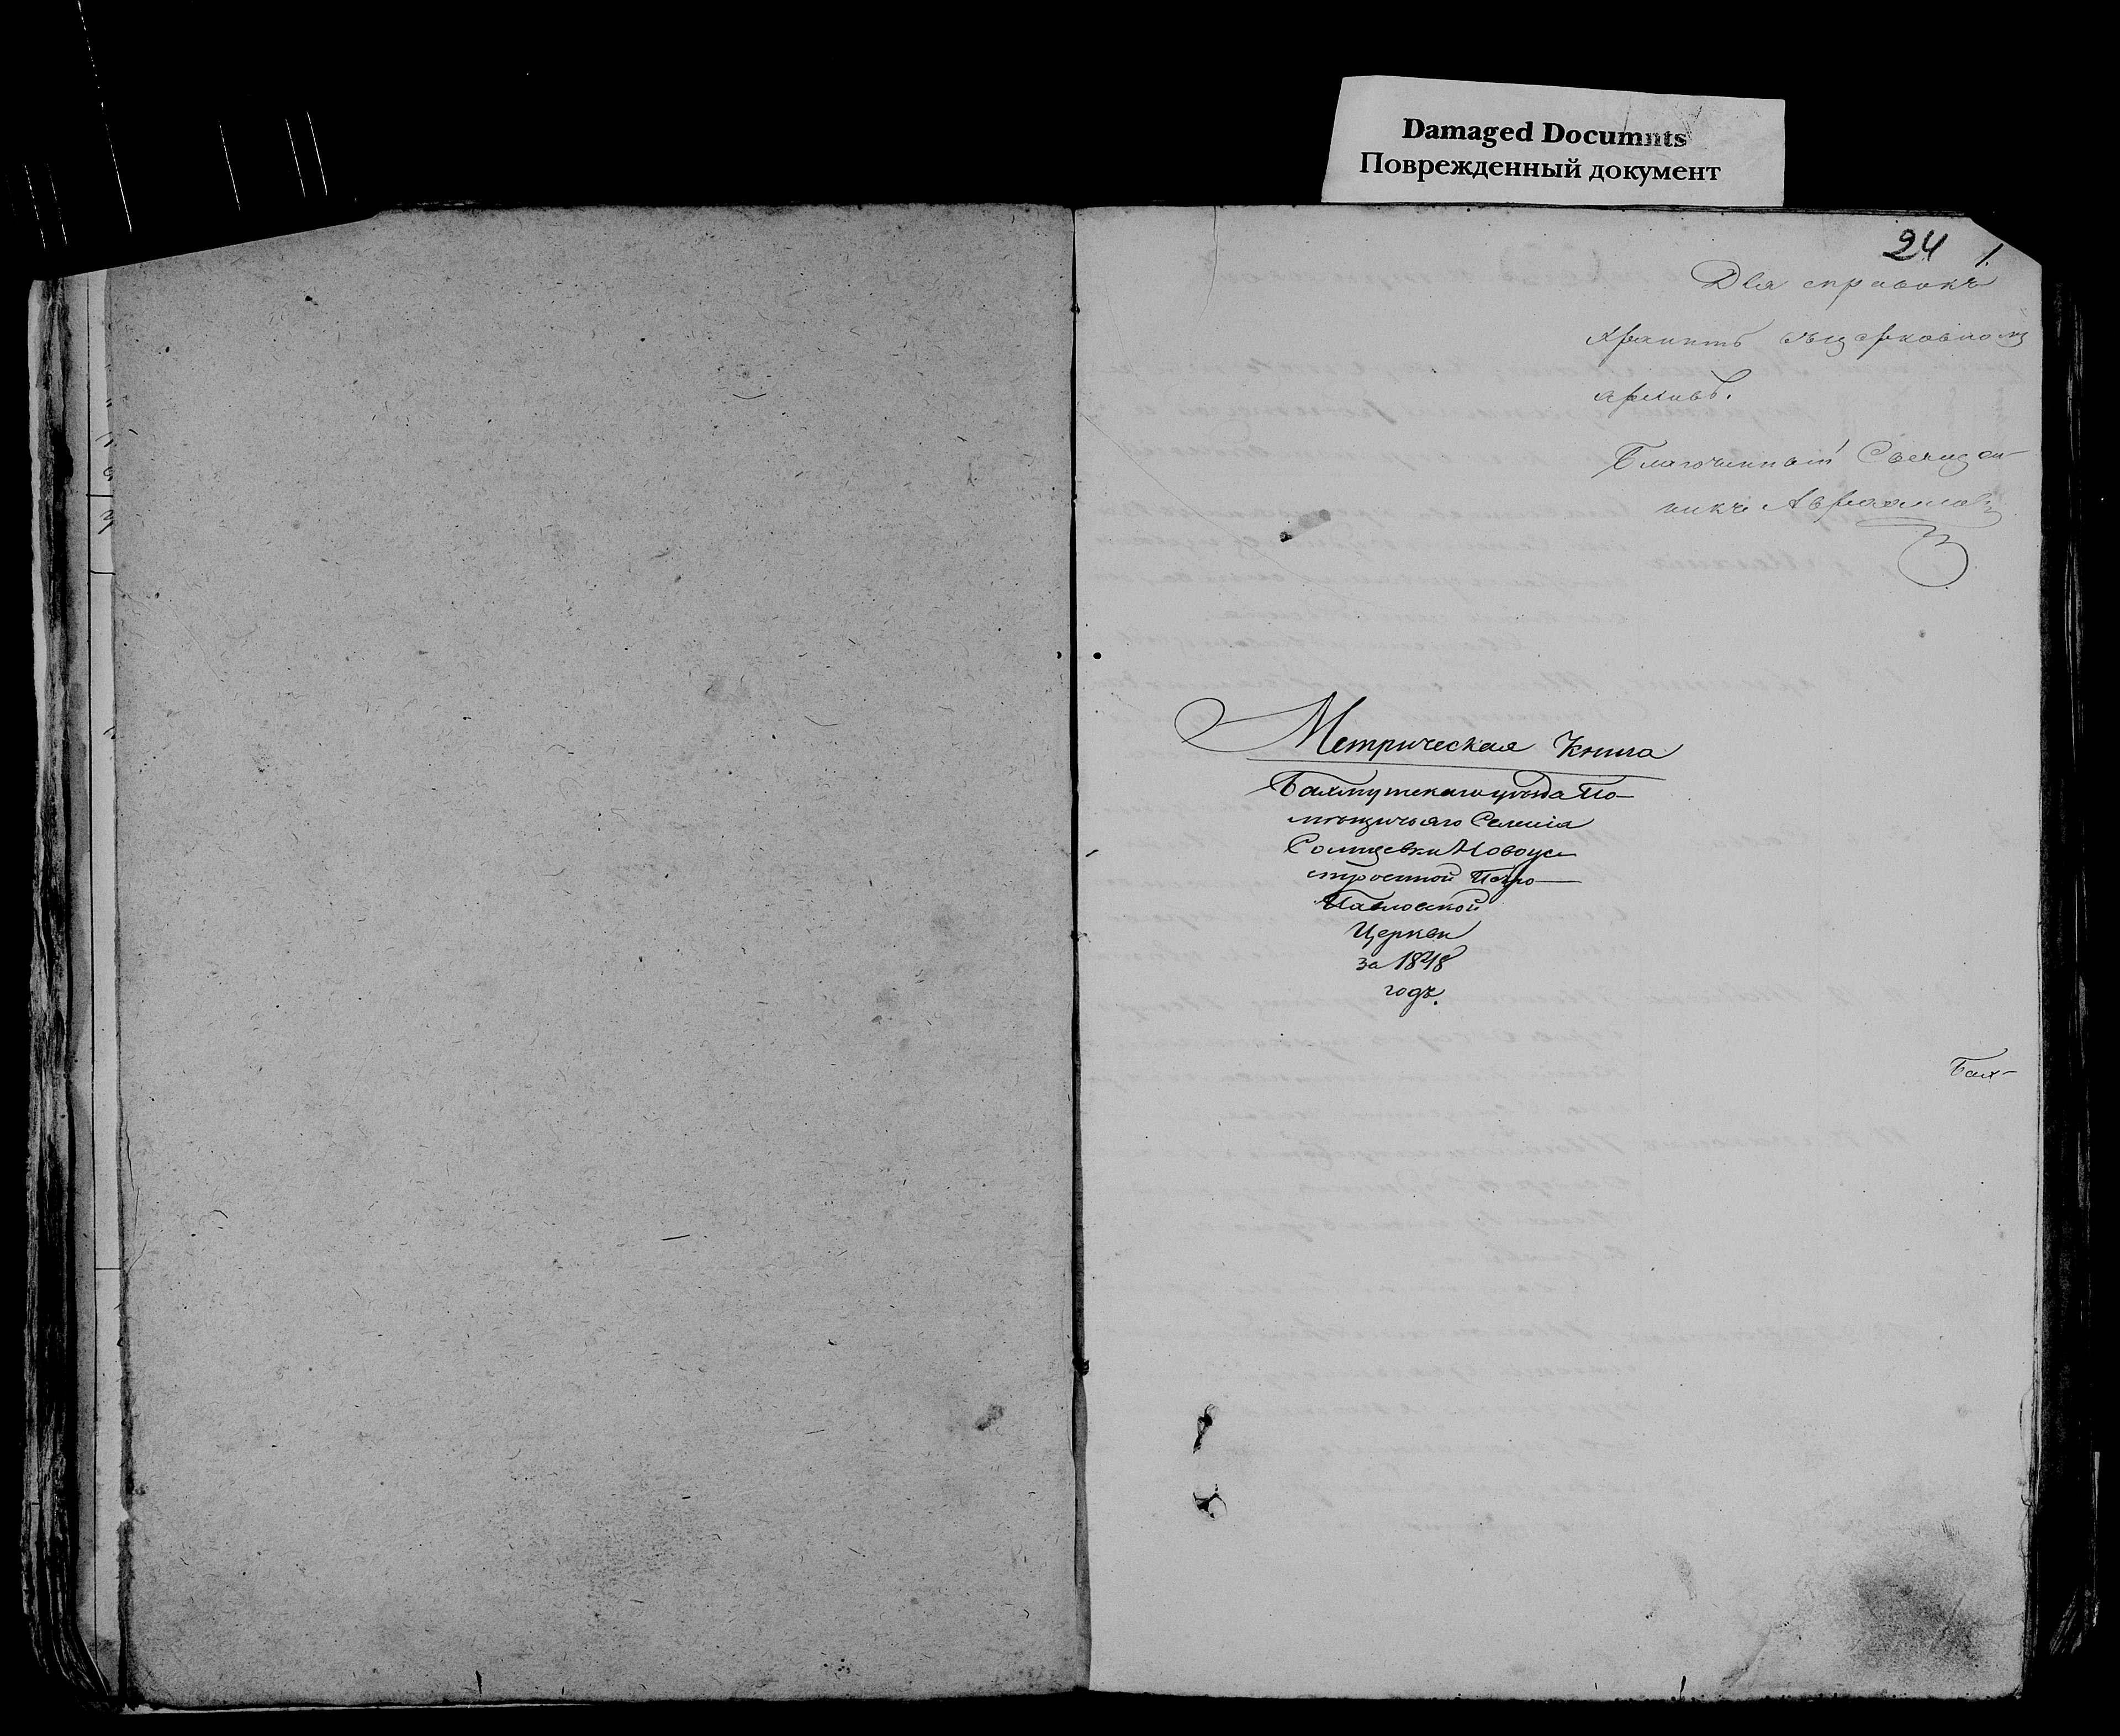 Damaged Documnts
Поврежденный документ
24 1.
Для справокъ
хранить въ церковномъ
архивѣ.
Благочинный Священ-
никъ Авраамовъ
Метрическая Книга
Бахмутскаго уѣзда По-
мѣщичьяго Селенія
Солнцевки Новоус-
троенной Петро-
Павловской
Церкви
за 1848
годъ.
Бах-